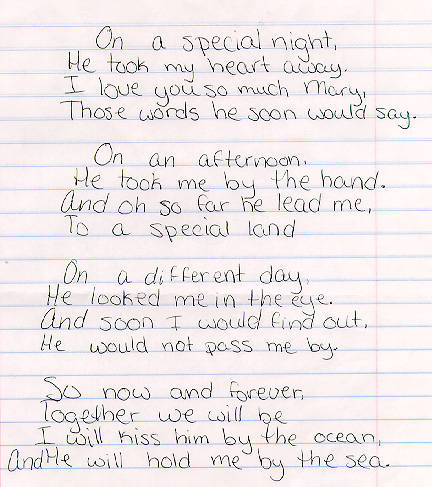 On a special night,
He took my heart away.
I love you so much Mary,
Those words he soon would say.
On an afternoon.
He took me by the hand.
And oh so far he lead me,
To a special land
On a different day,
He looked me in the eye.
And soon I would find out,
He would not pass me by.
So now and forever,
Together we will be
I will kiss him by the ocean,
And He will hold me by the sea.